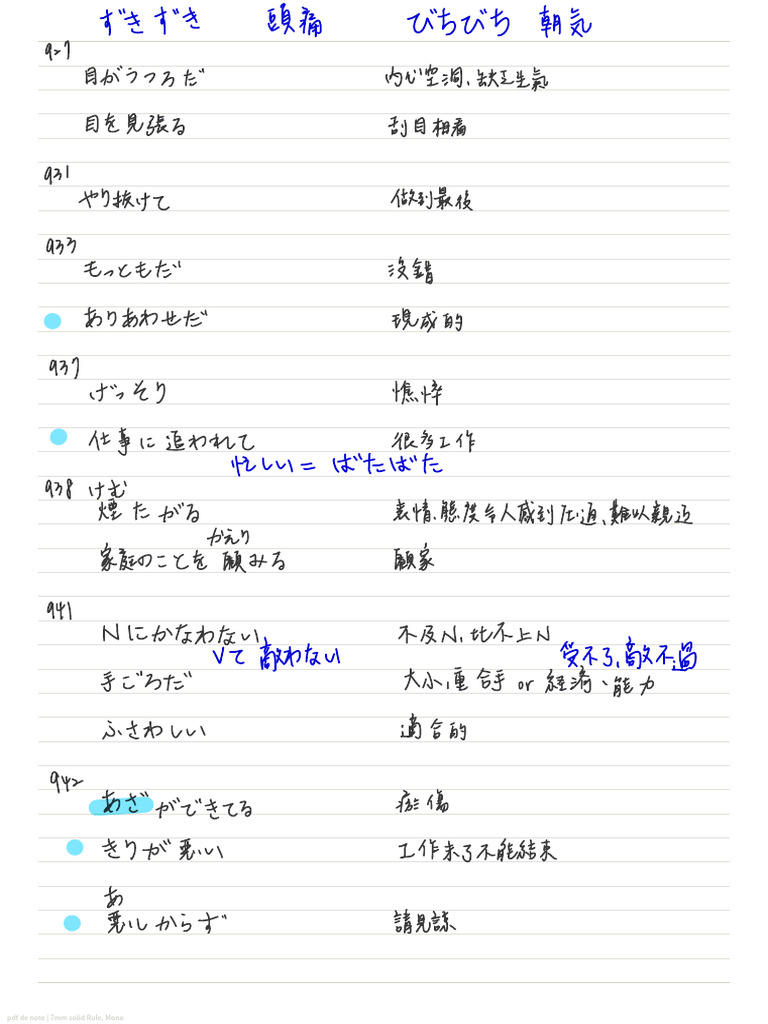 ずきずき 頭痛 びちびち 朝気
927
目がうつろだ 內心空洞、缺乏生氣
目を見張る 刮目相看
931
やり抜けて 做到最後
933
もっともだ 沒錯
ありあわせだ 現成的
937
げっそり 憔悴
仕事に追われて 很多工作
忙しい = ばたばた
938 けむ
煙たがる 表情、態度令人感到压迫、難以親近
かえり
家庭のことを顧みる 顧家
941
Nにかなわない 不及N,比不上N
Vて敵わない 受不了,敵不過
手ごろだ 大小,重合手 or 経済、能力
ふさわしい 適合的
942
あざができてる 瘀傷
きりが悪い 工作未了不能結束
あ
悪しからず 請見諒
pdf de note | 7mm solid Rule, Mono